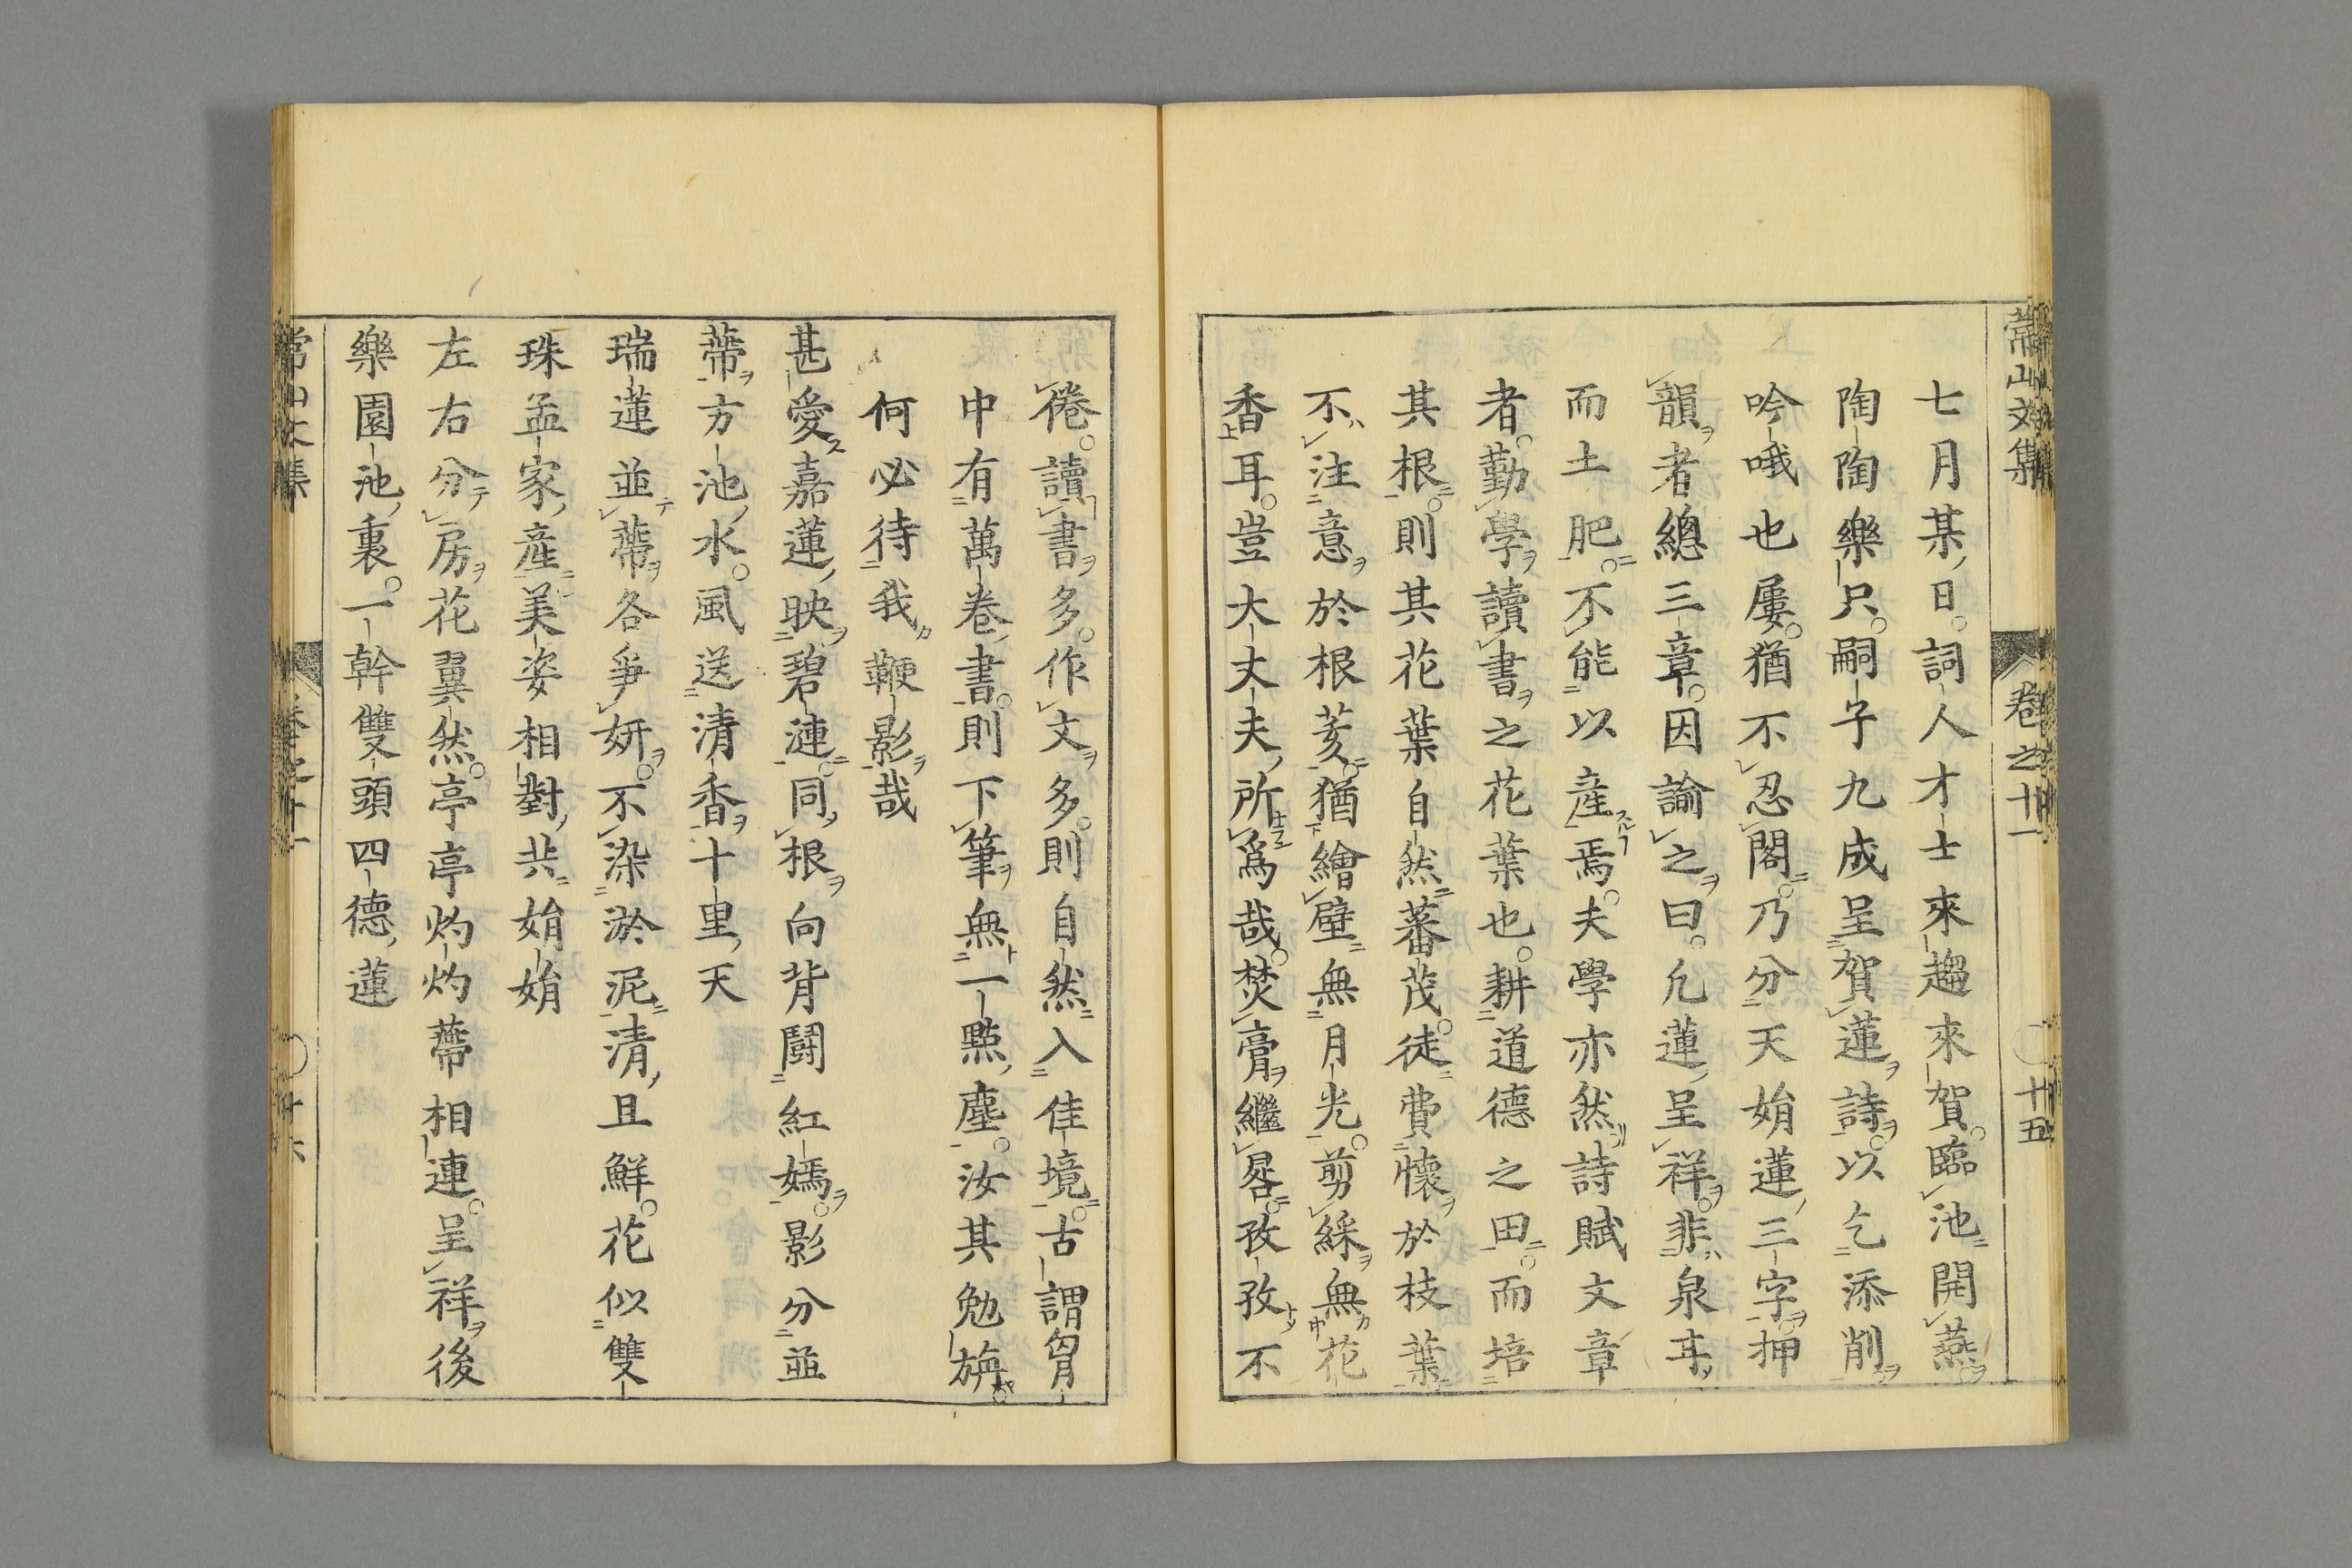 常山文集 卷之十一 〇十五
七月某日。詞人才士來趨來賀。臨池開燕
陶陶樂只。嗣子九成呈賀蓮詩。以乞添削
吟哦也屢。猶不忍閣。乃分天姢蓮三字。押
韻者總三章。因論之曰。允蓮呈祥。非泉耳
而土肥。不能以産焉。夫學亦然詩賦文章
者。勤學讀書之花葉也。耕道德之田。而培
其根。則其花葉自然蕃茂。徒費懷於枝葉
不注意於根荄。猶繪壁無月光。剪綵無花
香耳。豈大丈夫所爲哉。焚膏繼晷。孜孜不
倦。讀書多。作文多。則自然入佳境。古謂胷
中有萬卷書。則下筆無一點塵。汝其勉旃。
何必待我鞭影哉
甚愛嘉蓮映碧漣。同根向背鬪紅嫣。影分並
蔕方池水。風送清香十里天
瑞蓮並蔕各爭姸。不染淤泥清且鮮。花似雙
珠孟家産美姿相對共姢姢
左右分房花翼然。亭亭灼灼蔕相連。呈祥後
樂園池裏。一幹雙頭四德蓮
常山文集 卷之十一 〇十六